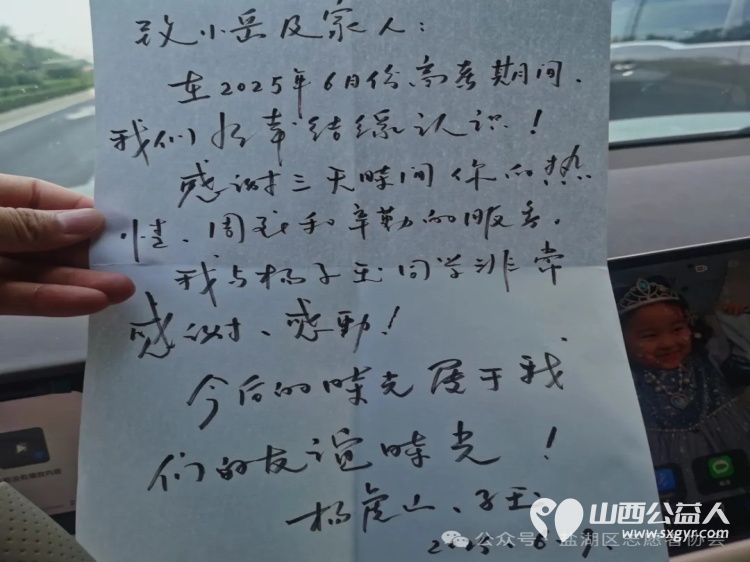 致小岳及家人：
在2025年6月份高考期间，
我们好幸结缘认识！
感谢三天时间你的热
情、周到和辛勤的服务。
我与杨子玉同学非常
感谢、感动！
今后的时光属于我
们的友谊时光！
杨虎山、子玉
2025.6.9.
公众号·盐湖区志愿者协会
山西公益人
www.sxgyr.com